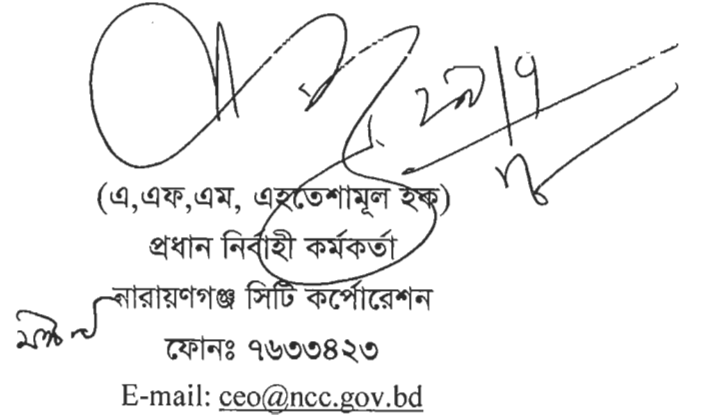 (এ,এফ,এম, এহতেশামূল হক)
প্রধান নির্বাহী কর্মকর্তা
নারায়ণগঞ্জ সিটি কর্পোরেশন
ফোনঃ ৭৬৩৩৪২৩
E-mail: ceo@ncc.gov.bd